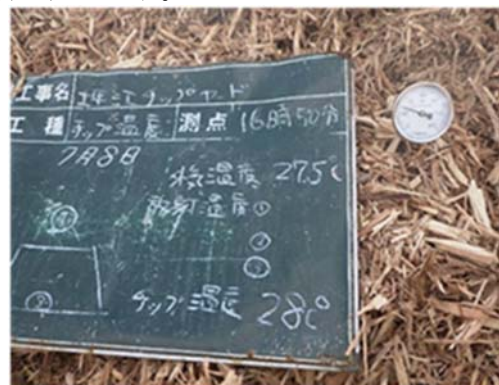 工事名 堀江チップヤード
工種 チップ温度 測点 16時50分
7月8日
検温度 27.5℃
放射温度①
②
③
チップ温度 28℃